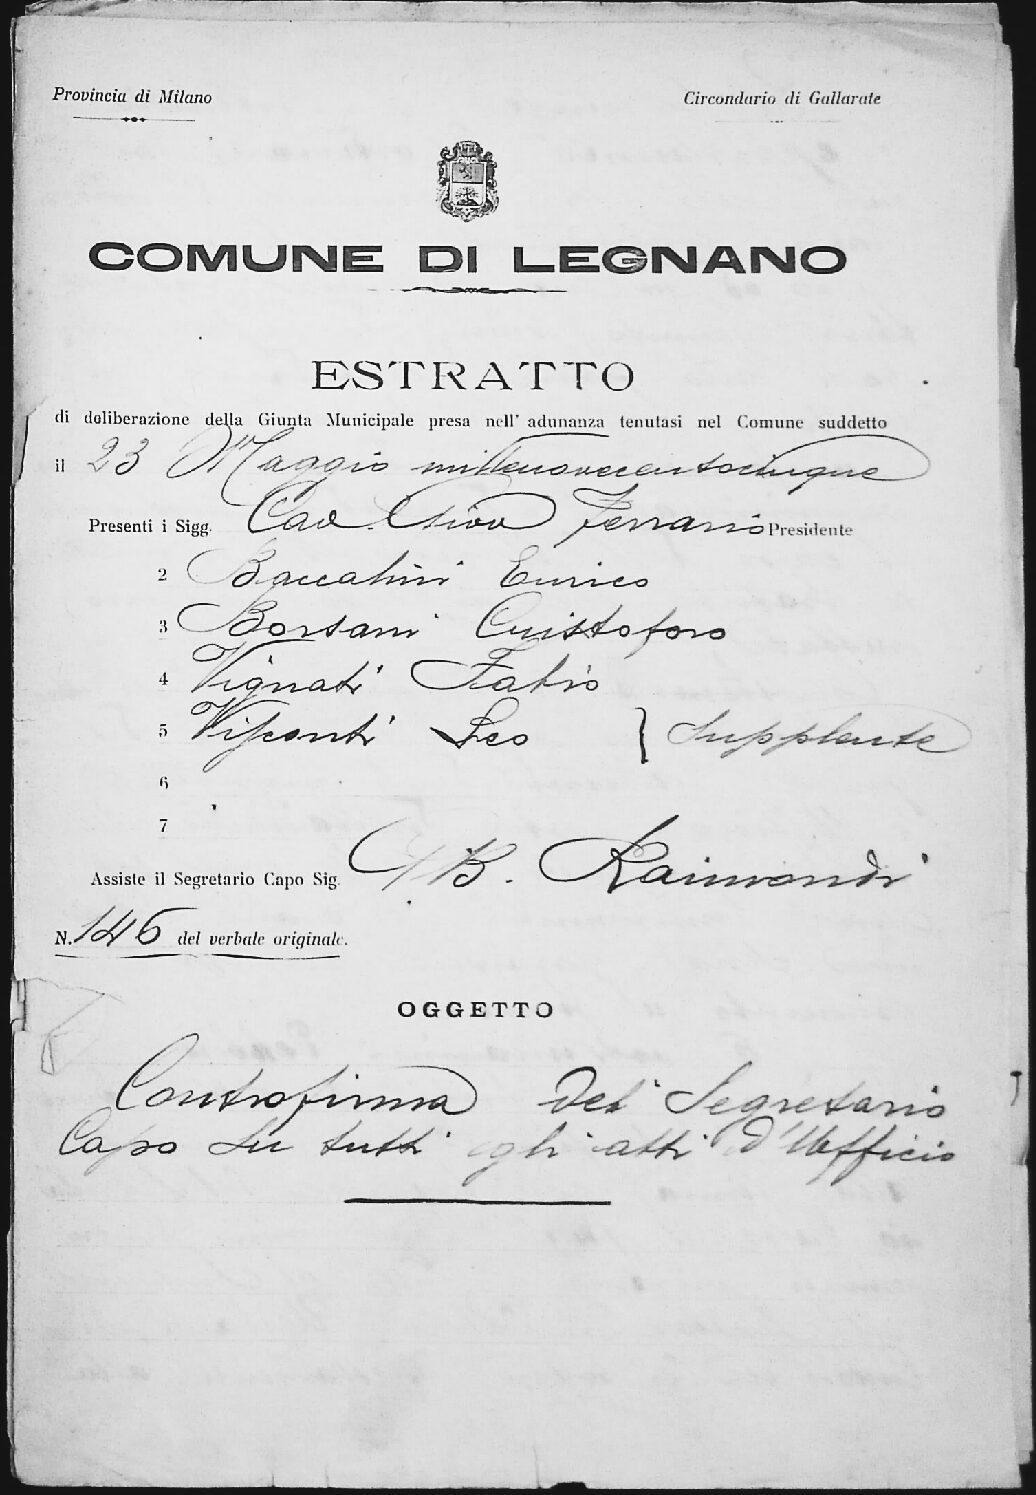 Provincia di Milano
Circondario di Gallarate
COMUNE DI LEGNANO
ESTRATTO
di deliberazione della Giunta Municipale presa nell' adunanza tenutasi nel Comune suddetto
il 23 Maggio millenovecentocinque
Presenti i Sigg. Cav. Ferrario Presidente
2 Baccalini Enrico
3 Borsani Cristoforo
4 Vignati Fabio
5 Visconti Leo } Supplente
6
7
Assiste il Segretario Capo Sig. GB. Raimondi
N. 146 del verbale originale.
OGGETTO
Controfirma del Segretario
Capo su tutti gli atti d'Ufficio